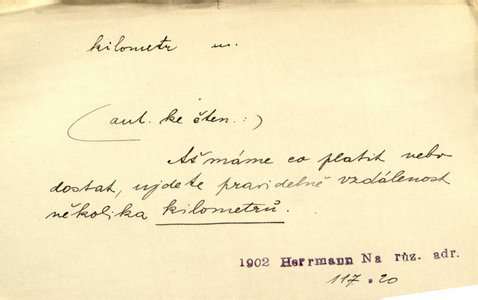 kilometr m.
(aut. ke čten.:)
Ať máme co platit nebo
dostat, ujdete pravidelně vzdálenost
několika kilometrů.
1902 Herrmann Na růz. adr.
117.20